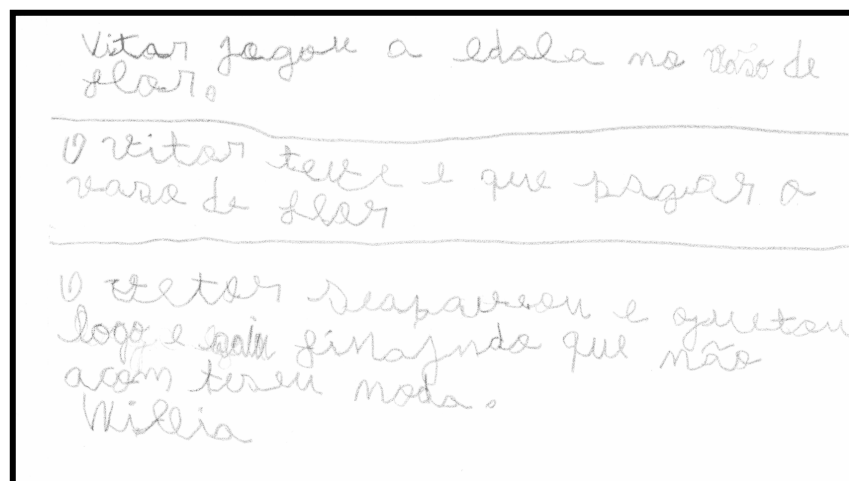 Vitor jogou a edola no vaso de
flor.
O vitor teve e que pagar o
vaso de flor
O vetor seapaveeou e aguetou
logo e saiu finajndo que não
acom teseu nada.
Millia